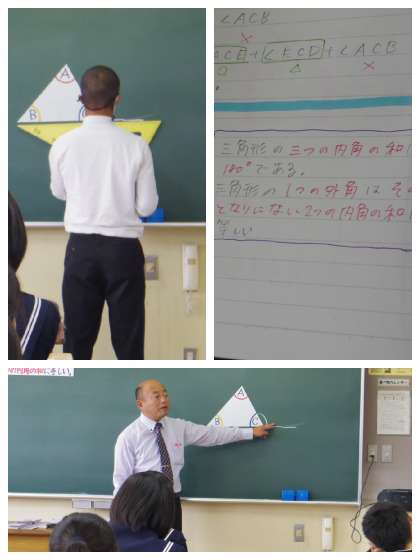 A
B
∠ACB
×
ACE + ∠ECD + ∠ACB
○ △ ×
三角形の三つの内角の和
180°である。
三角形の1つの外角は そ
となりにない2つの内角の和
等しい
の内角の和に等しい。
A
B
C